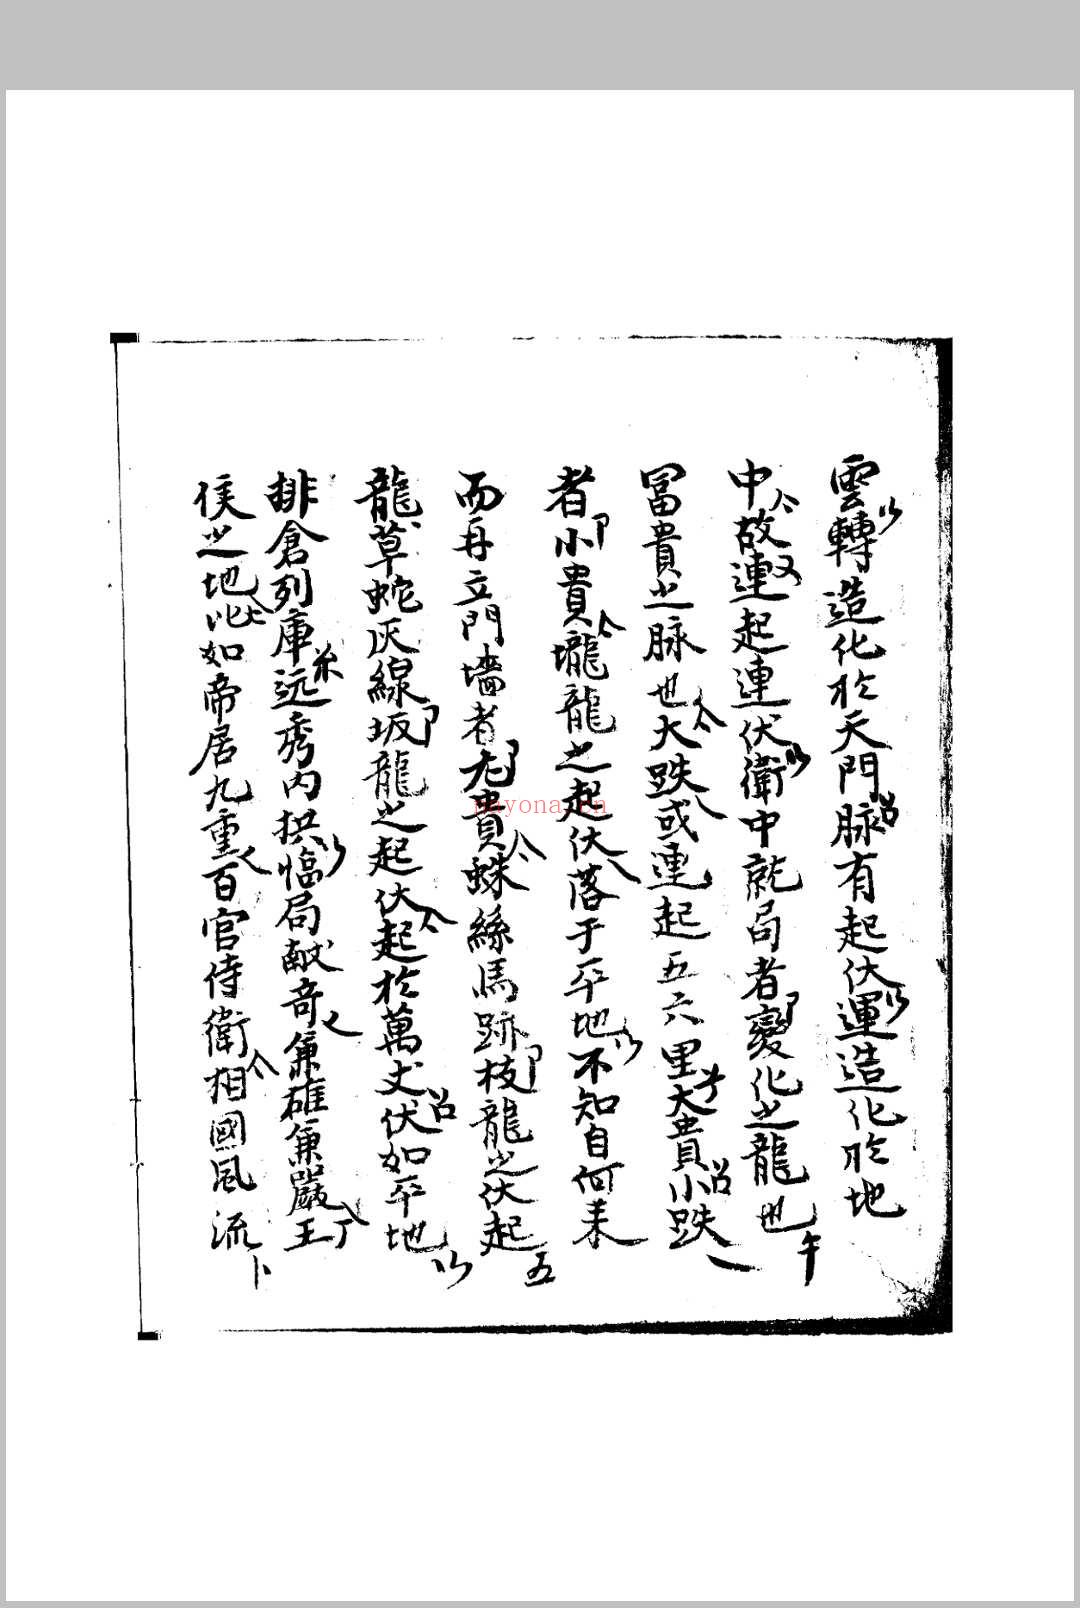 雲轉造化於天門脉有起伏運造化於地
中故連起連伏衛中就局者變化之龍也
富貴之脉也大跌或連起五六里大貴小跌
者小貴壠龍之起伏落于平地不知自何来
而再立門墻者尤貴蛛絲馬跡枝龍之伏起
龍草蛇灰線坂龍之起伏起於萬丈伏如平地
排倉列庫远秀内拱臨局献奇兼雄兼嚴王
侯之地比如帝居九重百官侍衛相國风流
nayona.cn